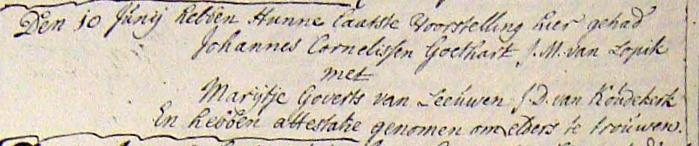 Den 10 Junij hebben Hunne laatste Voorstelling hier gehad
Johannes Cornelissen Goethart J.M. van Lopik
met
Marijtje Goverts van Leeúwen J.D. van Koúdekerk
En hebben attestatie genomen om elders te troúwen.